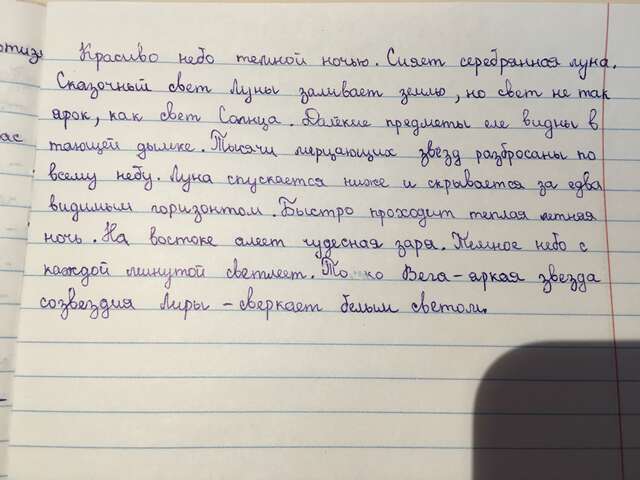 отизи
Красиво небо темной ночью. Сияет серебрянная луна.
Сказочный свет Луны заливает землю, но свет не так
ярок, как свет Солнца. Далекие предметы еле видны в
ас
тающей дымке. Тысячи мерцающих звезд разбросаны по
всему небу. Луна спускается ниже и скрывается за едва
видимым горизонтом. Быстро проходит теплая летняя
ночь. На востоке алеет чудесная заря. Темное небо с
каждой минутой светлеет. То ко Вега - яркая звезда
созвездия Лиры - сверкает белым светом.